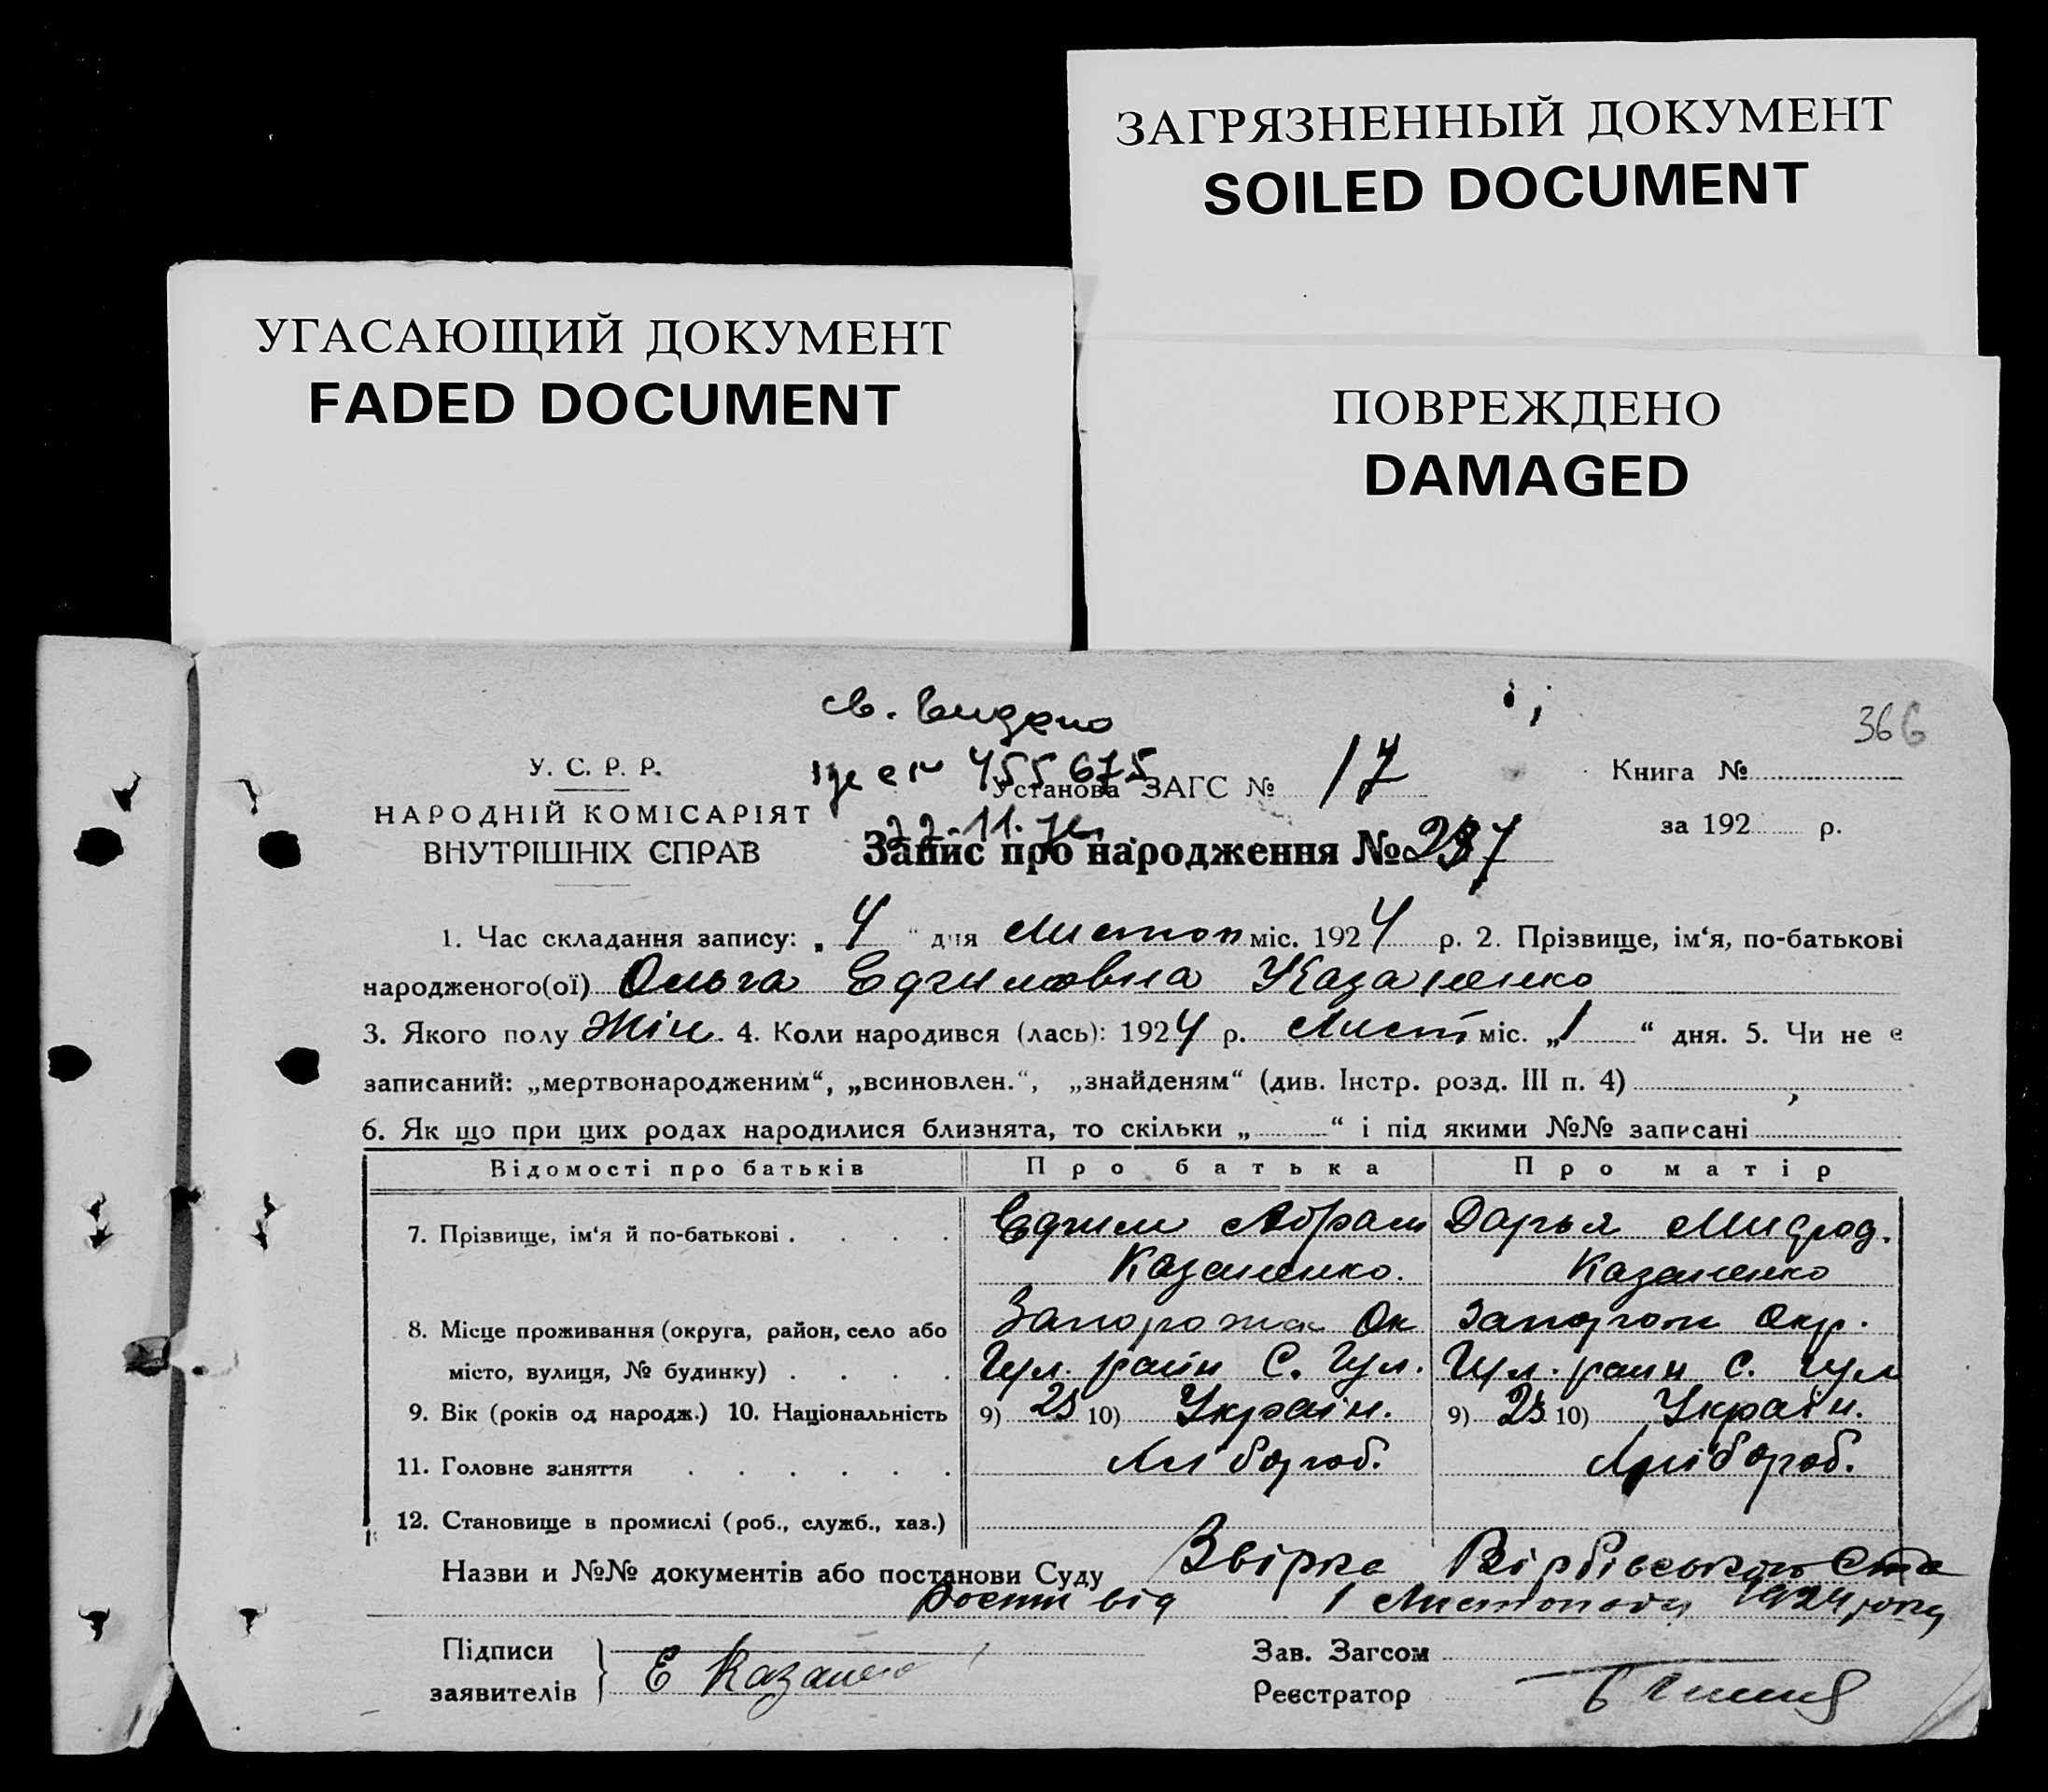 ЗАГРЯЗНЕННЫЙ ДОКУМЕНТ
SOILED DOCUMENT
УГАСАЮЩИЙ ДОКУМЕНТ
FADED DOCUMENT
ПОВРЕЖДЕНО
DAMAGED
366
св. видано
455675
22.11.
У. С. Р. Р.
НАРОДНІЙ КОМІСАРІЯТ
ВНУТРІШНІХ СПРАВ
Установа ЗАГС № 17
Книга №
за 192 р.
Запис про народження № 237
1. Час складання запису: „4“ дня Листоп міс. 1924 р. 2. Прізвище, ім‘я, по-батькові
народженого(ої) Ольга Ефимовна Казаненко
3. Якого полу Жін. 4. Коли народився (лась): 1924 р. Лист міс. „1“ дня. 5. Чи не є
записаний: „мертвонародженим“, „всиновлен.“, „знайденям“ (див. Інстр. розд. III п. 4)
6. Як що при цих родах народилися близнята, то скільки „ “ і під якими №№ записані
Відомості про батьків Про батька Про матір
7. Прізвище, ім‘я й по-батькові . . . . Ефим Абрам Дарья Мифод.
Казаненко. Казаненко
8. Місце проживання (округа, район, село або Запорожск Ок Запорож Окр.
місто, вулиця, № будинку) . . . . Гул. район С. Гул. Гул. раин С. Гул
9. Вік (років од народж.) 10. Національність 9) 25 10) Україн. 9) 25 10) Україн.
11. Головне заняття . . . . . . Хлібороб. Хлібороб.
12. Становище в промислі (роб., служб., хаз.)
Назви и №№ документів або постанови Суду Звірка Вірбівського Ста
рости від 1 Листопода 1924 року
Підписи
заявителів Е Казанен
Зав. Загсом
Реєстратор